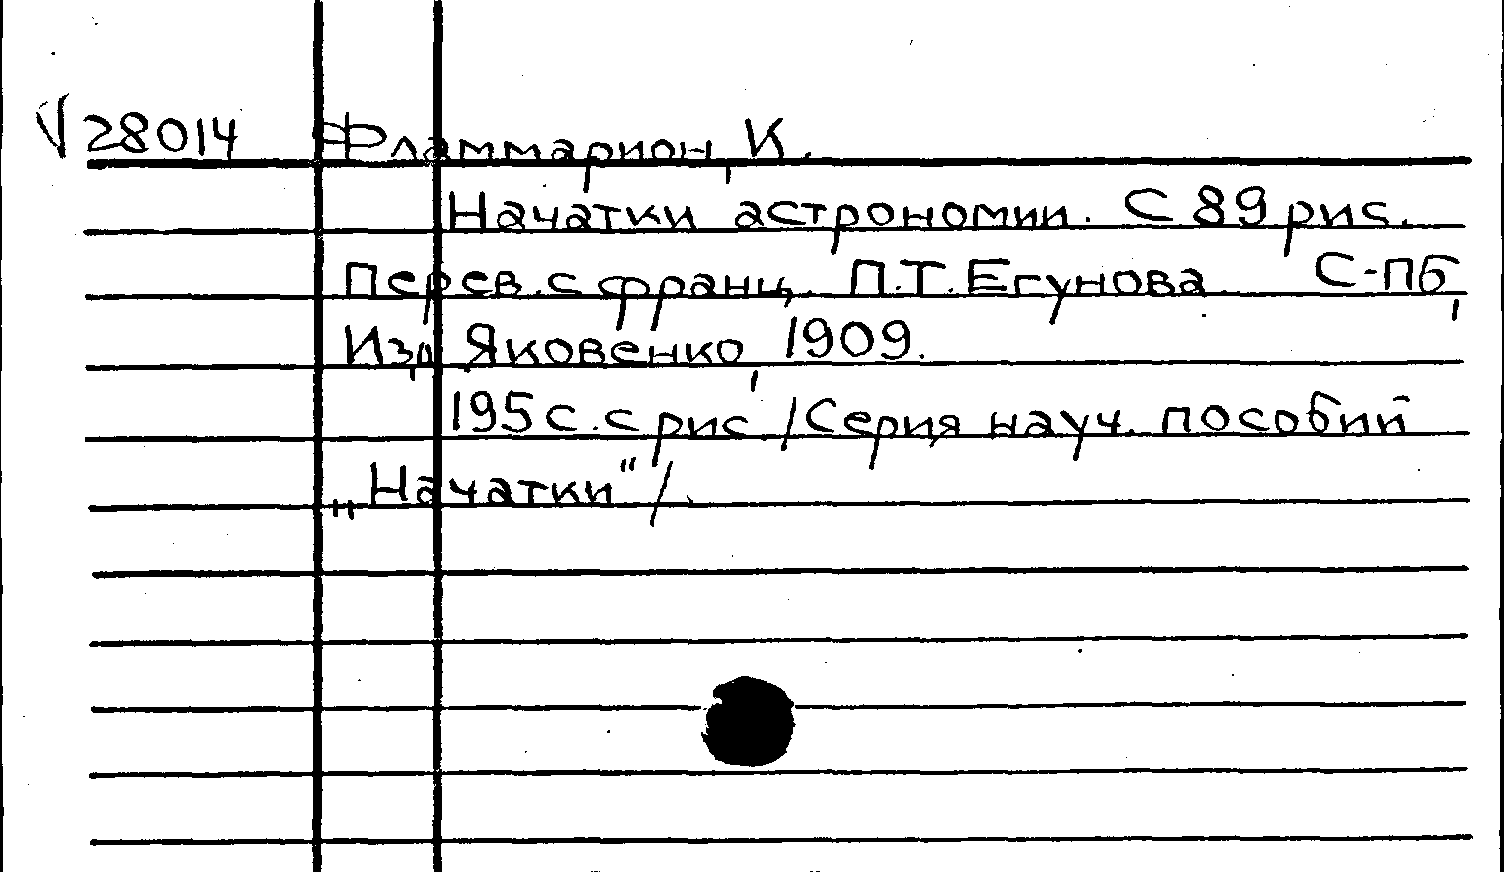 √28014 Фламмарион, К.
Начатки астрономии. С 89 рис.
Перев. с франц. П.Т. Егунова. С-Пб,
Изд. Яковенко, 1909.
195 с. с рис. /Серия науч. пособий
„Начатки"/.